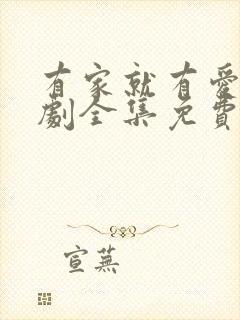 有家就有愛
劇全集免費
宣蕪